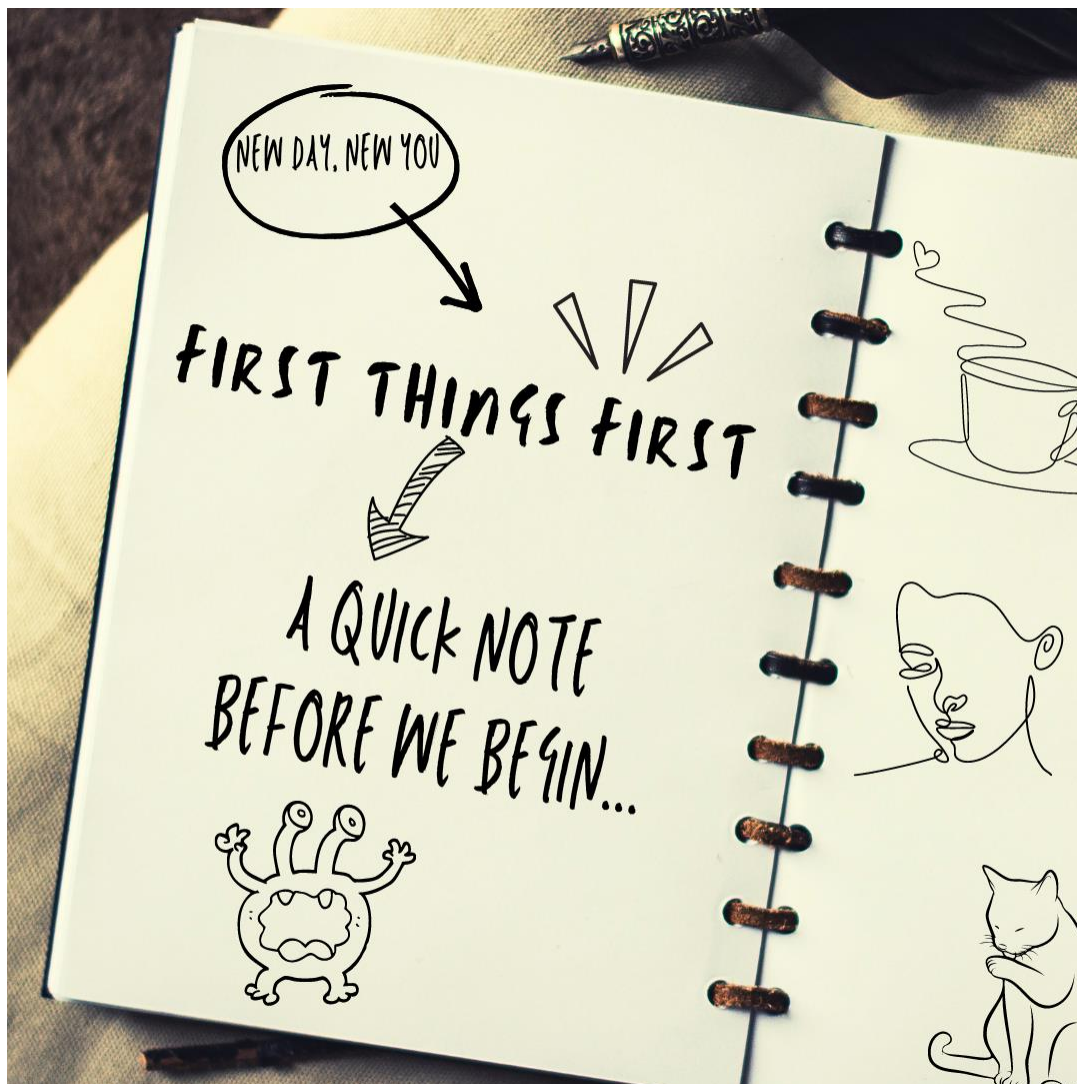 NEW DAY, NEW YOU
FIRST THINGS FIRST
A QUICK NOTE
BEFORE WE BEGIN...